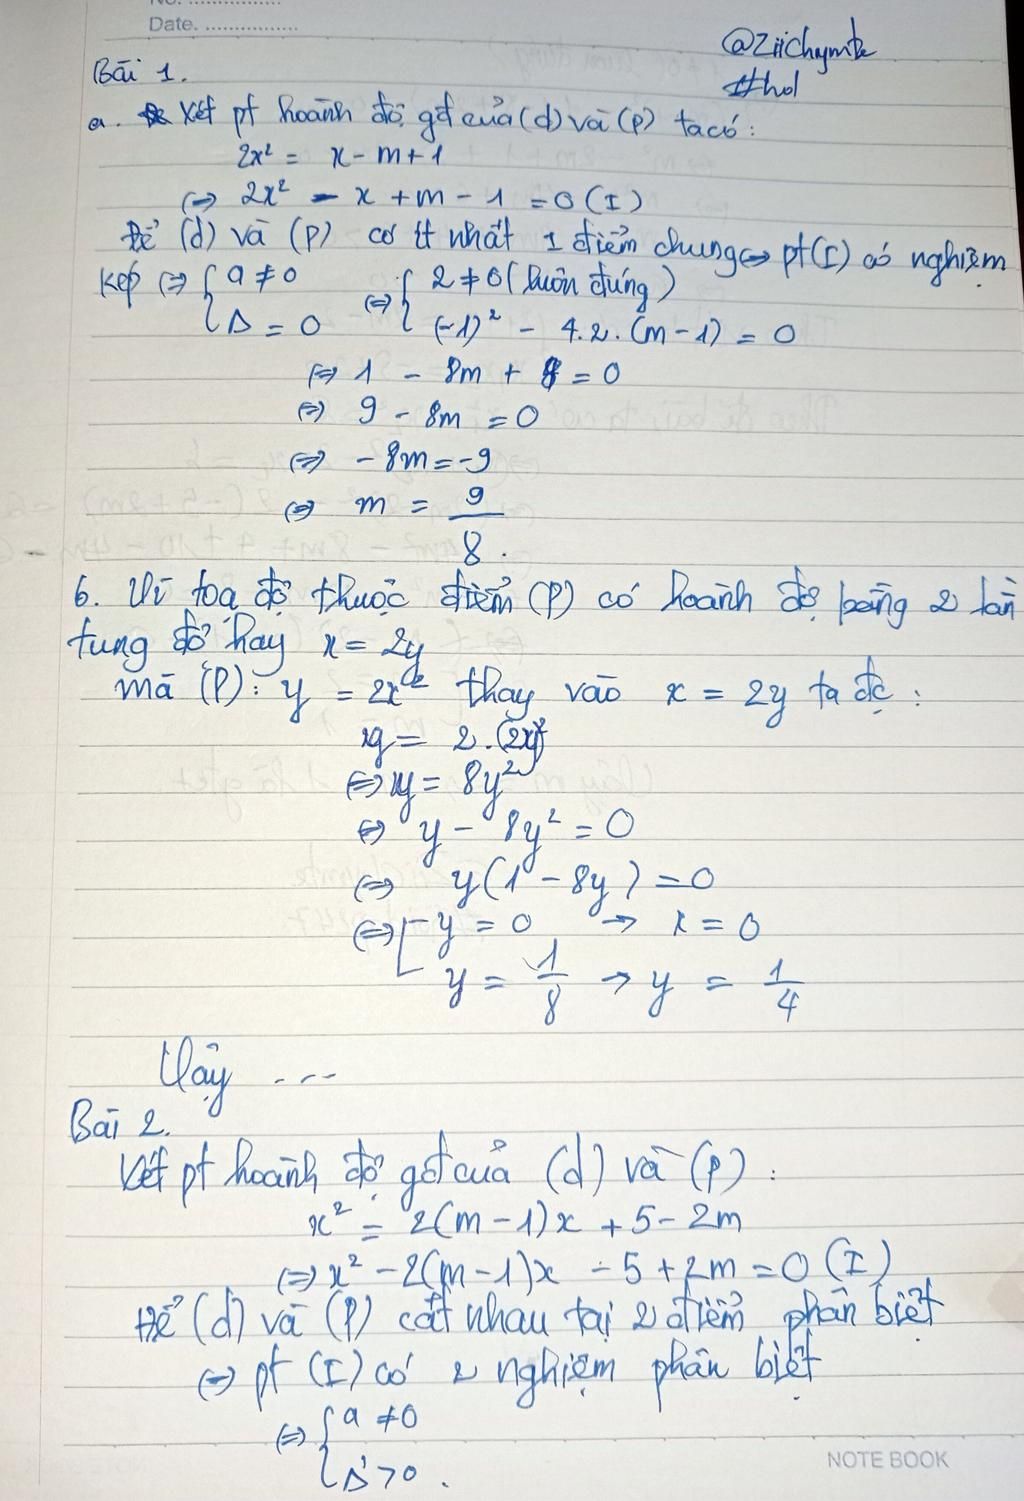 Date. ................
@Ziichymte
#hol
Bài 1.
a. Xét pt hoành độ gđ của (d) và (P) ta có:
2x² = x - m + 1
⇔ 2x² - x + m - 1 = 0 (I)
Để (d) và (P) có ít nhất 1 điểm chung ⇔ pt (I) có nghiệm
kép ⇔ { a ≠ 0 ⇔ { 2 ≠ 0 (luôn đúng)
Δ = 0 (-1)² - 4.2.(m - 1) = 0
⇔ 1 - 8m + 8 = 0
⇔ 9 - 8m = 0
⇔ - 8m = -9
⇔ m = 9/8.
b. Vì toạ độ thuộc điểm (P) có hoành độ bằng 2 lần
tung độ hay x = 2y
mà (P): y = 2x² thay vào x = 2y ta đc:
y = 2.(2y)²
⇔ y = 8y²
⇔ y - 8y² = 0
⇔ y(1 - 8y) = 0
⇔ [ y = 0 → x = 0
y = 1/8 → y = 1/4
Vậy ---
Bài 2.
Xét pt hoành độ gđ của (d) và (P):
x² = 2(m - 1)x + 5 - 2m
⇔ x² - 2(m - 1)x - 5 + 2m = 0 (I)
Để (d) và (P) cắt nhau tại 2 điểm phân biệt
⇔ pt (I) có 2 nghiệm phân biệt
⇔ { a ≠ 0
Δ' > 0.
NOTE BOOK